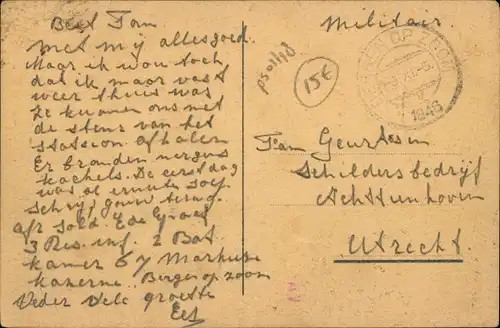 Best Tom
met mij alles goed.
Maar ik wou toch
dat ik maar vast
weer thuis was
Ze kunnen ons met
de stens van het
stasion afhalen
Er branden nergens
kachels. De eerst dag
was al ernute soep
Schrijf gouw terug.
afz sold. Ede Graaf
3 Res. inf. 2 Bat
kamer 67 Markiese
kazerne. Bergen op zoom
Veder vele groette
Militair.
15€
1946
Fam Geurtsen
Schildersbedrijf
Achttienhoven
Utrecht.